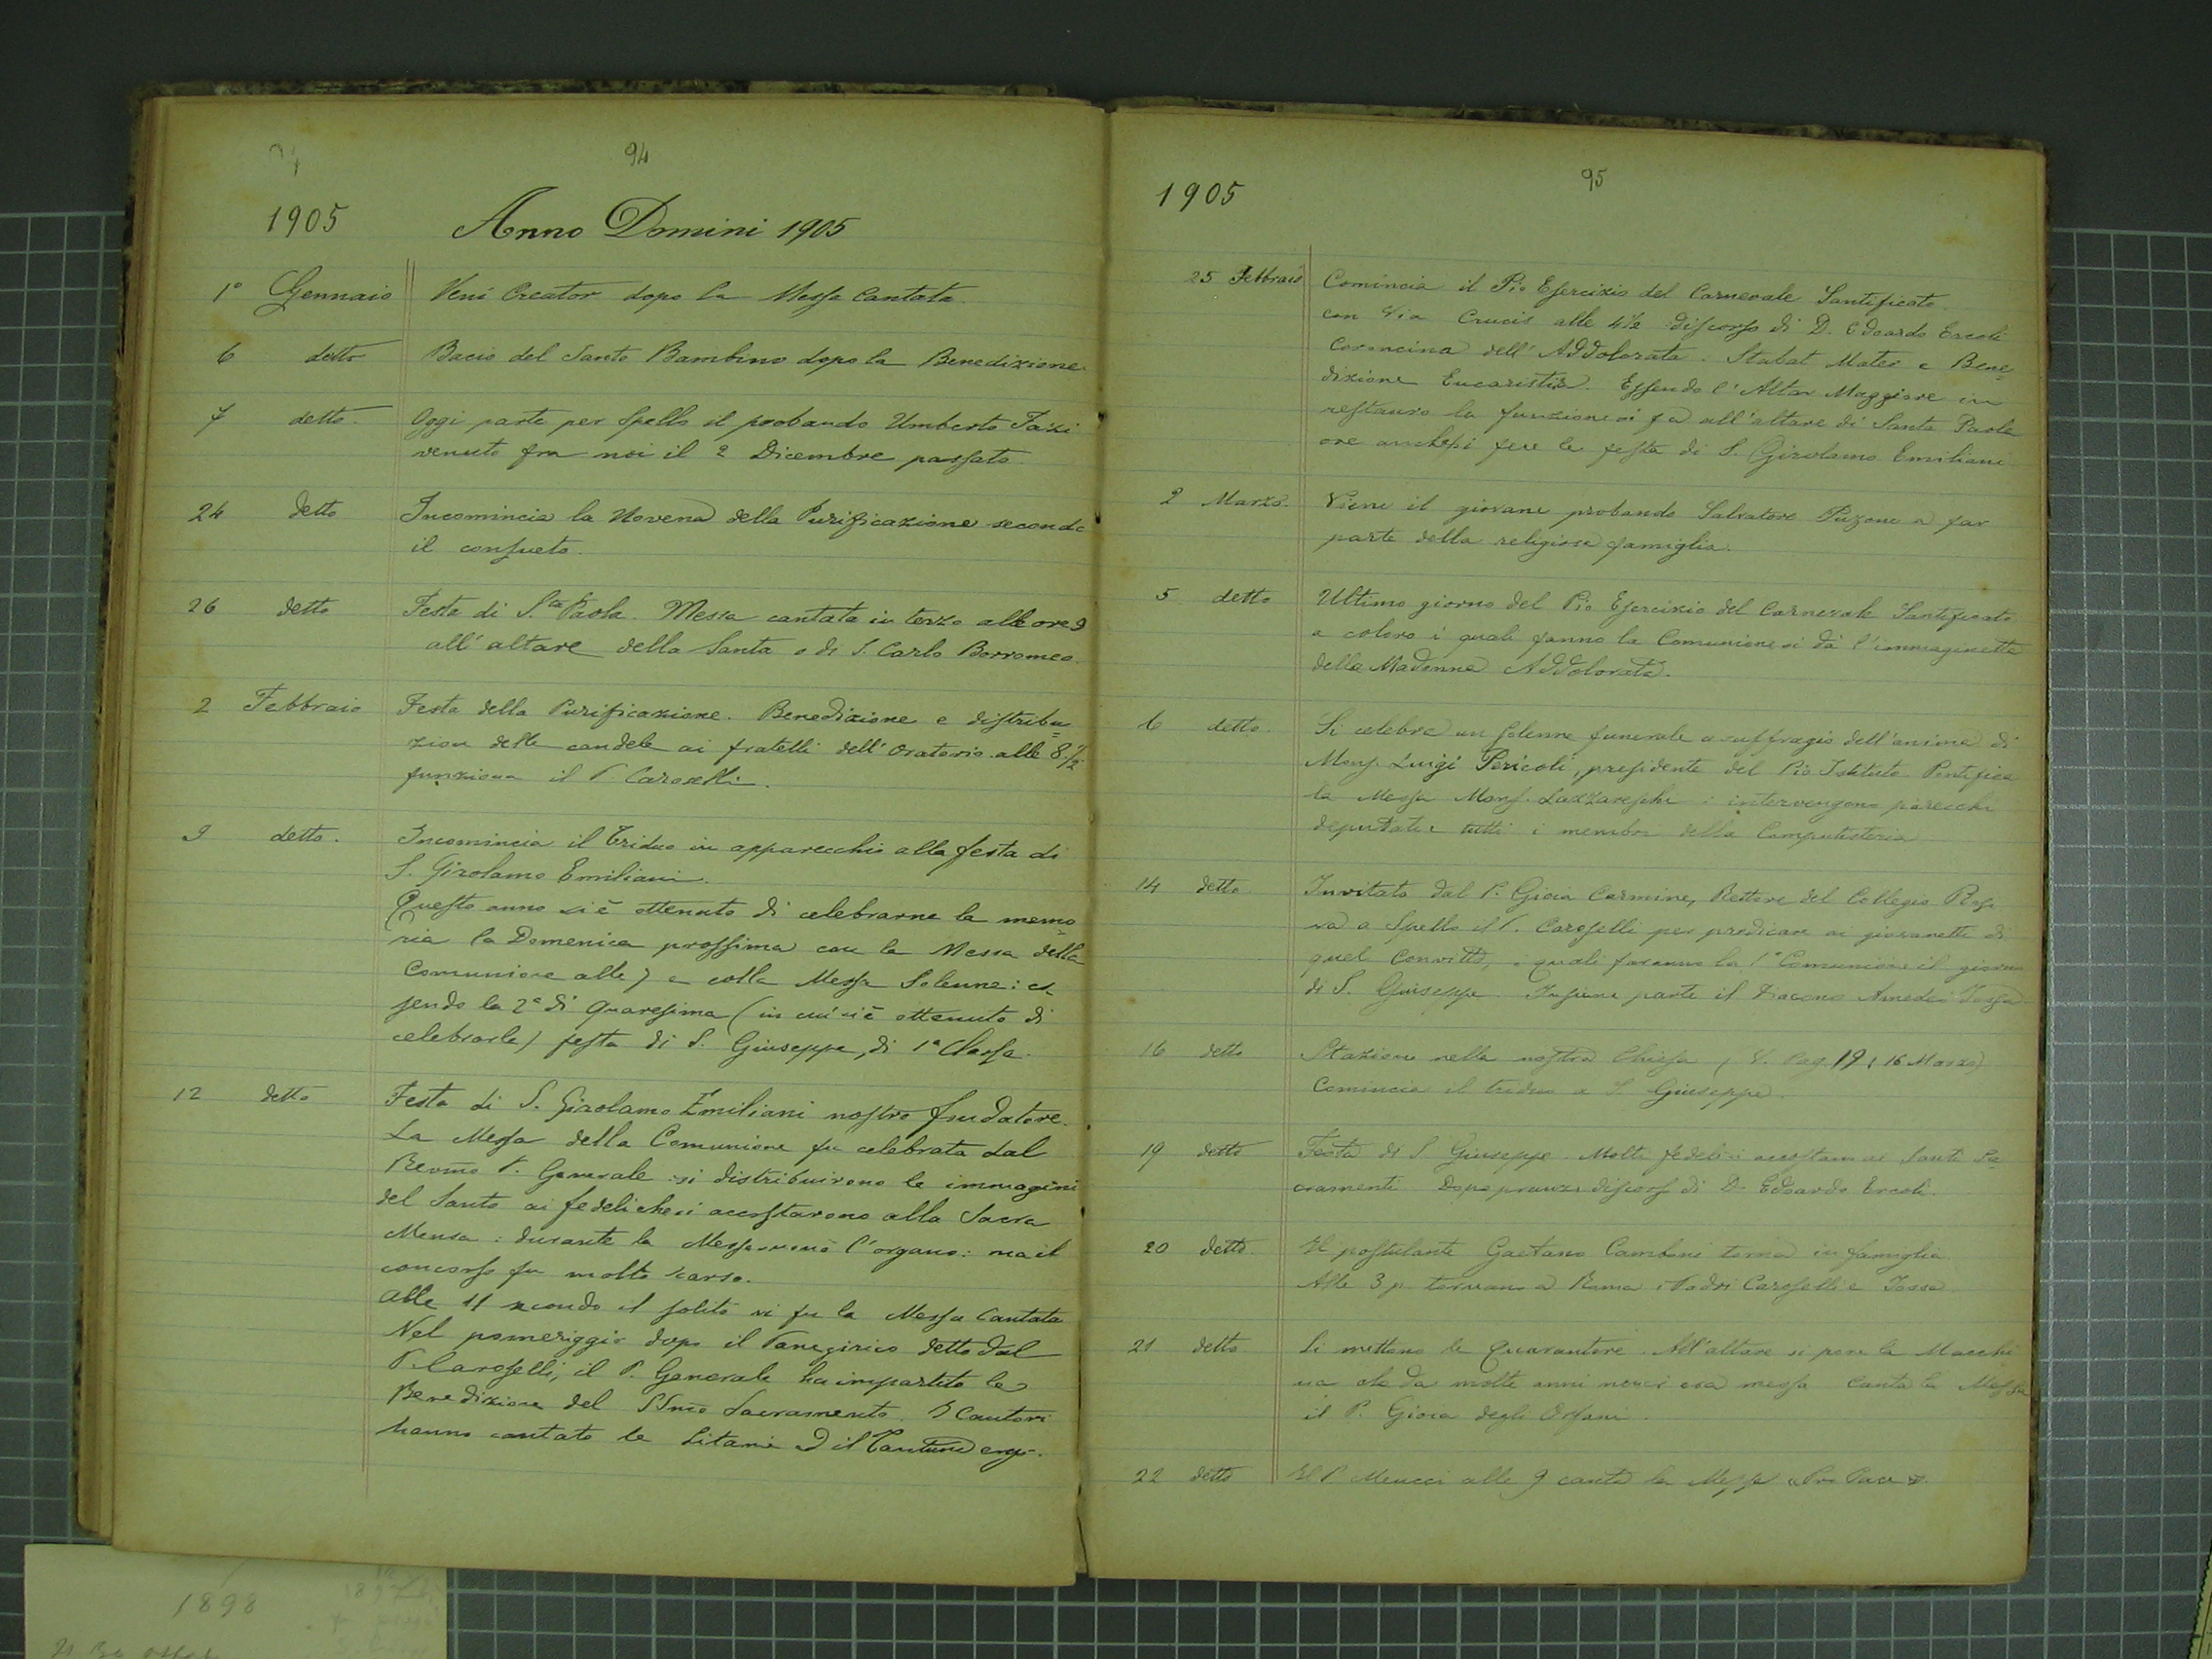 94
1905 Anno Domini 1905
1° Gennaio Veni Creator dopo la Messa Cantata.
6 detto Bacio del Santo Bambino dopo la Benedizione.
7 detto. Oggi parte per Spello il probando Umberto Tazi
venuto fra noi il 2 Dicembre passato.
24 detto Incomincia la Novena della Purificazione secondo
il consueto.
26 detto Festa di S.ta Paola. Messa cantata in terzo alle ore 9
all'altare della Santa e di S. Carlo Borromeo.
2 Febbraio Festa della Purificazione. Benedizione e distribu=
zion delle candele ai fratelli dell'Oratorio alle 8.1/2
funziona il P. Caroselli.
9 detto. Incomincia il Triduo in apparecchio alla festa di
S. Girolamo Emiliani.
Questo anno si è ottenuto di celebrarne la memo=
ria la Domenica prossima con la Messa della
Comunione alle 7 e colla Messa Solenne: es
sendo la 2ª di Quaresima (in cui si è ottenuto di
celebrarla) festa di S. Giuseppe, di 1ª Classe.
12 detto Festa di S. Girolamo Emiliani nostro fondatore.
La Messa della Comunione fu celebrata dal
Revmo P. Generale: si distribuirono le immagini
del Santo ai fedeli che si accostarono alla Sacra
Mensa: durante la Messa suonò l'organo: ma il
concorso fu molto scarso.
Alle 11 secondo il solito vi fu la Messa Cantata
Nel pomeriggio dopo il Panegirico detto dal
P. Caroselli, il P. Generale ha impartito la
Benedizione del SSmo Sacramento. I Cantori
hanno cantato le Litanie ed il Tantum ergo.
95
1905
25 Febbraio Comincia il Pio Esercizio del Carnevale Santificato
con Via Crucis alle 4½ discorso di D. Edoardo Ercoli
Coroncina dell'Addolorata. Stabat Mater e Bene=
dizione Eucaristica. Essendo l'Altar Maggiore in
restauro la funzione si fa all'altare di Santa Paola
ove anche si fece la festa di S. Girolamo Emiliani
2 Marzo. Viene il giovane probando Salvatore Puzone a far
parte della religiosa famiglia.
5 detto Ultimo giorno del Pio Esercizio del Carnevale Santificato
a coloro i quali fanno la Comunione si dà l'immaginetta
della Madonna Addolorata.
6 detto. Si celebra un solenne funerale a suffragio dell'anima di
Mons. Luigi Pericoli, presidente del Pio Istituto Pontifica
la Messa Mons. Lazzareschi: intervengono parecchi
deputati e tutti i membri della Computisteria
14 detto Invitato dal P. Gioia Carmine, Rettore del Collegio Rosi
va a Spello il P. Caroselli per predicare ai giovanetti di
quel Convitto, i quali faranno la 1ª Comunione il giorno
di S. Giuseppe. Insieme parte il Diacono Amedeo Iossa
16 detto Stazione nella nostra Chiesa (V. Pag. 19, 16 Marzo)
Comincia il triduo a S. Giuseppe.
19 detto Festa di S. Giuseppe. Molti fedeli si accostano ai Santi Sa
cramenti. Dopo pranzo discorso di D. Edoardo Ercoli.
20 detto. Il postulante Gaetano Camboni torna in famiglia
Alle 3 p. tornano a Roma i Padri Caroselli e Iossa
21 detto Si mettono le Quarantore. All'altare si pone la Macchi
na che da molti anni non ci era messa. Canta la Messa
il P. Gioia degli Orfani.
22 detto Il P. Meucci alle 9 canta la Messa "Pro Pace".
1898